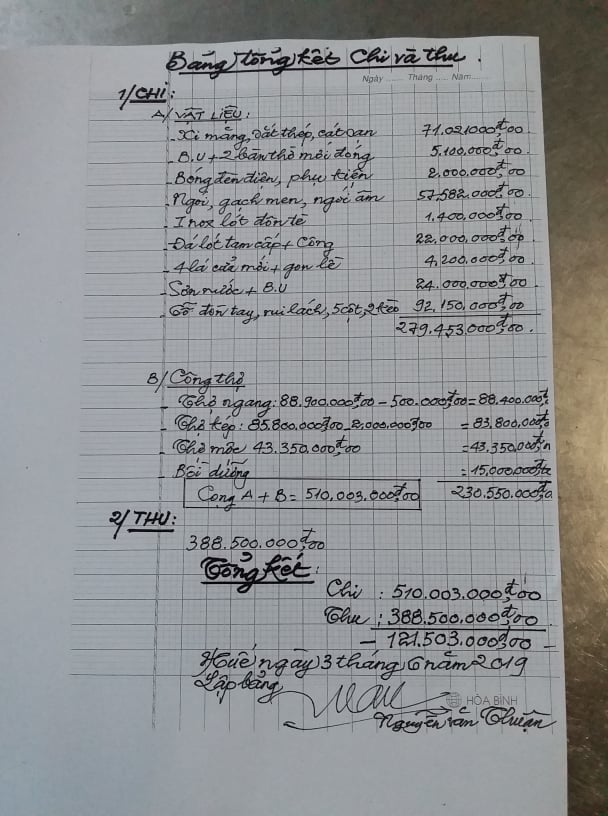 Bảng tổng kết Chi và thu.
Ngày ...... Tháng ..... Năm.......
1/ CHI:
A/ VẬT LIỆU:
- Xi măng, sắt thép, cát sạn 71.021000đ,00
- B.U + 2 bàn thờ mới đóng 5.100,000đ,00
- Bóng đèn điện, phụ kiện 2.000,000đ,00
- Ngói, gạch men, ngói âm 57,582.000đ,00
- Inox lót đòn tề 1.400,000đ,00
- Đá lót tam cấp + Công 22,000,000đ,00
- 4 lá cửa mới + gon lề 4,200,000đ,00
- Sơn nước + B.U 24.000,000đ,00
- Gỗ đòn tay, rui lách, 5 cột, 2 kèo 92,150,000đ,00
279.453,000đ,00.
B/ Công thợ
- Thợ ngang: 88,900.000đ,00 - 500.000đ,00 = 88,400.000đ
- Thợ kép: 85,800.000đ,00 - 2,000,000đ,00 = 83,800,000đ,
- Thợ mộc 43.350.000đ,00 = 43.350,000đ,
- Bồi dưỡng = 15,000,000đ,
230.550.000đ,
Cộng A + B = 510,003,000đ,00
2/ THU:
388.500.000đ,00
Tổng kết:
Chi : 510.003.000đ,00
Thu : 388.500.000đ,00
- 121.503.000đ,00 -
Huế ngày 3 tháng 6 năm 2019
Lập bảng
HÒA BÌNH
Nguyễn văn Thuận